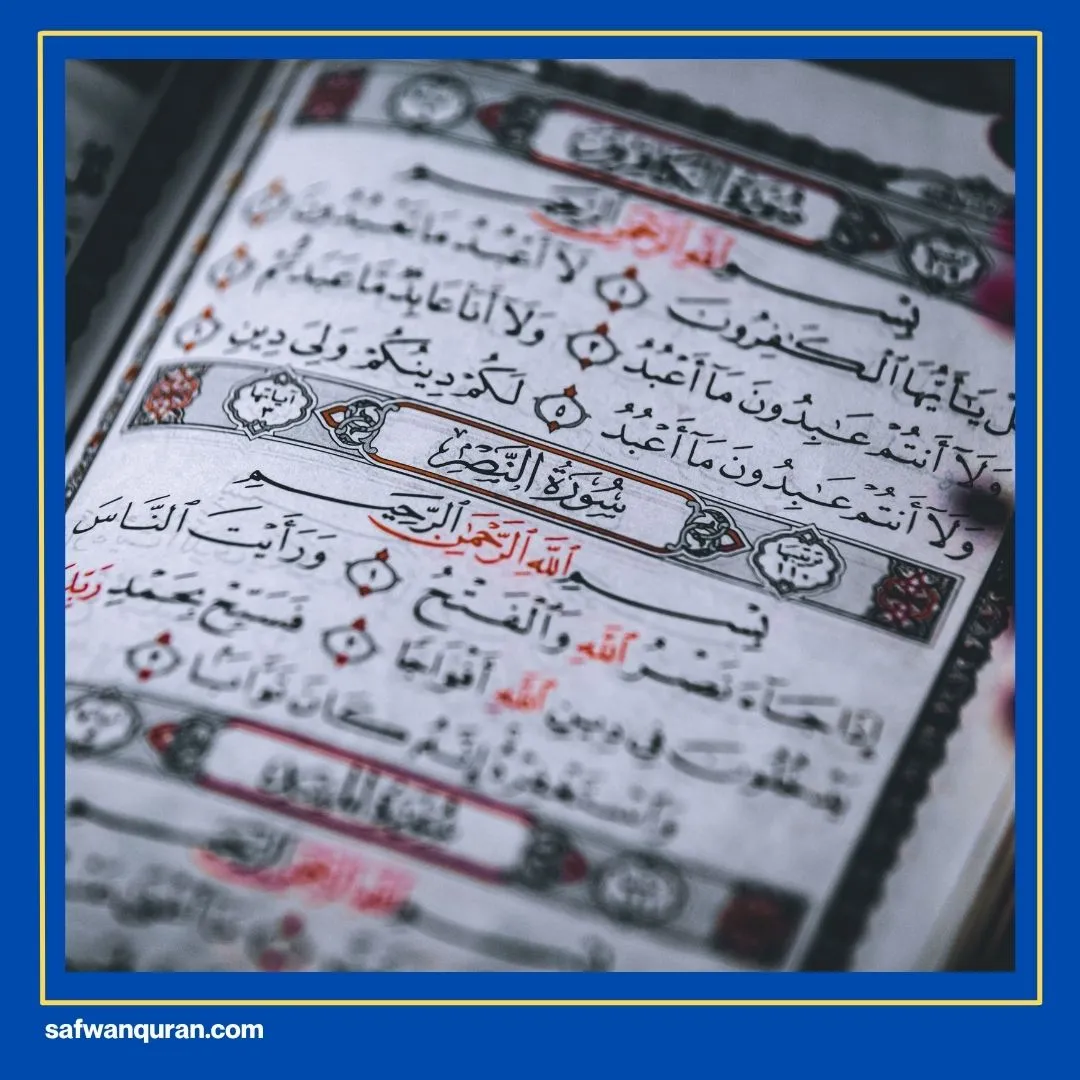 سُورَةُ الكَافِرُونَ
بِسْمِ ٱللَّهِ ٱلرَّحْمَٰنِ ٱلرَّحِيمِ
يَٰٓأَيُّهَا ٱلْكَٰفِرُونَ ١ لَآ أَعْبُدُ مَا تَعْبُدُونَ
وَلَآ أَنتُمْ عَٰبِدُونَ مَآ أَعْبُدُ ٣ وَلَآ أَنَا۠ عَابِدٌ مَّا عَبَدتُّمْ
وَلَآ أَنتُمْ عَٰبِدُونَ مَآ أَعْبُدُ ٥ لَكُمْ دِينُكُمْ وَلِىَ دِينِ
رتبها ١١٠ سُورَةُ النَّصْرِ آياتها ٣
بِسْمِ ٱللَّهِ ٱلرَّحْمَٰنِ ٱلرَّحِيمِ
إِذَا جَآءَ نَصْرُ ٱللَّهِ وَٱلْفَتْحُ ١ وَرَأَيْتَ ٱلنَّاسَ
يَدْخُلُونَ فِى دِينِ ٱللَّهِ أَفْوَاجًا ٢ فَسَبِّحْ بِحَمْدِ رَبِّكَ
وَٱسْتَغْفِرْهُ إِنَّهُۥ كَانَ تَوَّابًۢا ٣
بِسْمِ ٱللَّهِ ٱلرَّحْمَٰنِ ٱلرَّحِيمِ
safwanquran.com